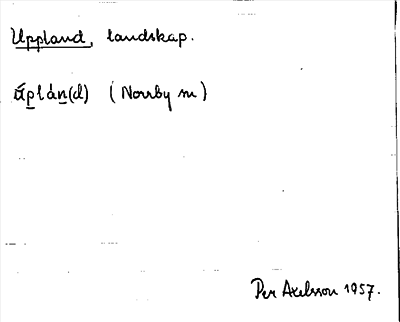 Uppland, landskap.
úplán(d) (Norrby m)
Per Axelsson 1957.